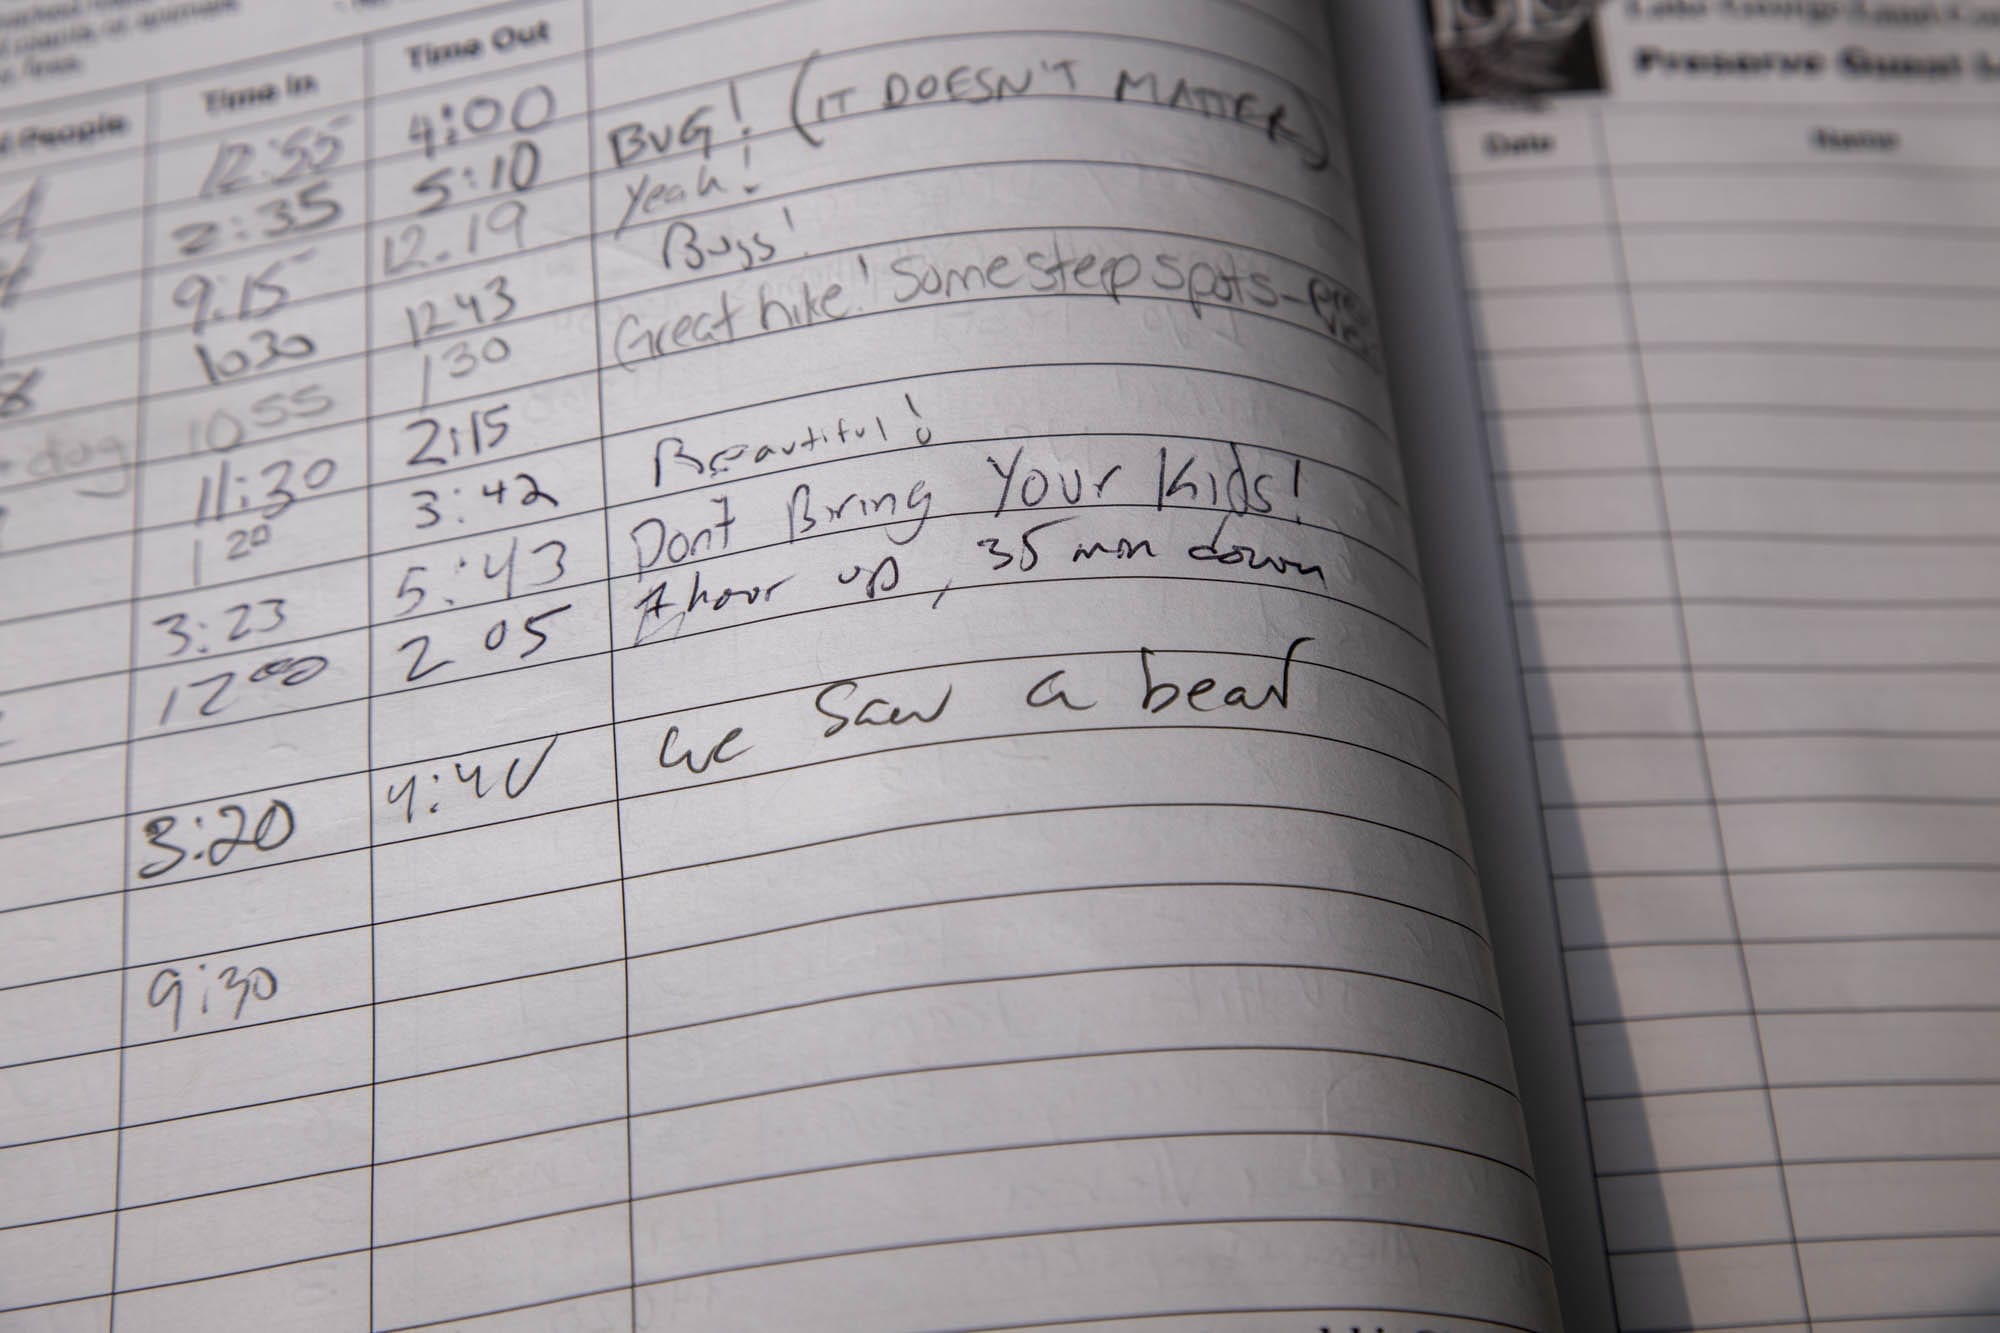 Time In Time Out
People
12:55 4:00
2:35 5:10 BUG! (IT DOESN'T MATTER)
9:15 12.19 Yeah!
8 1030 1243 Bugs!
dog 1055 130 Great hike! Some steep spots-
11:30 2:15
1 20 3:42 Beautiful!
3:23 5:43 Dont Bring Your Kids!
12 00 2 05 1 hour up, 35 min down
3:20 4:40 we saw a bear
9:30
Preserve Guest
Date Name